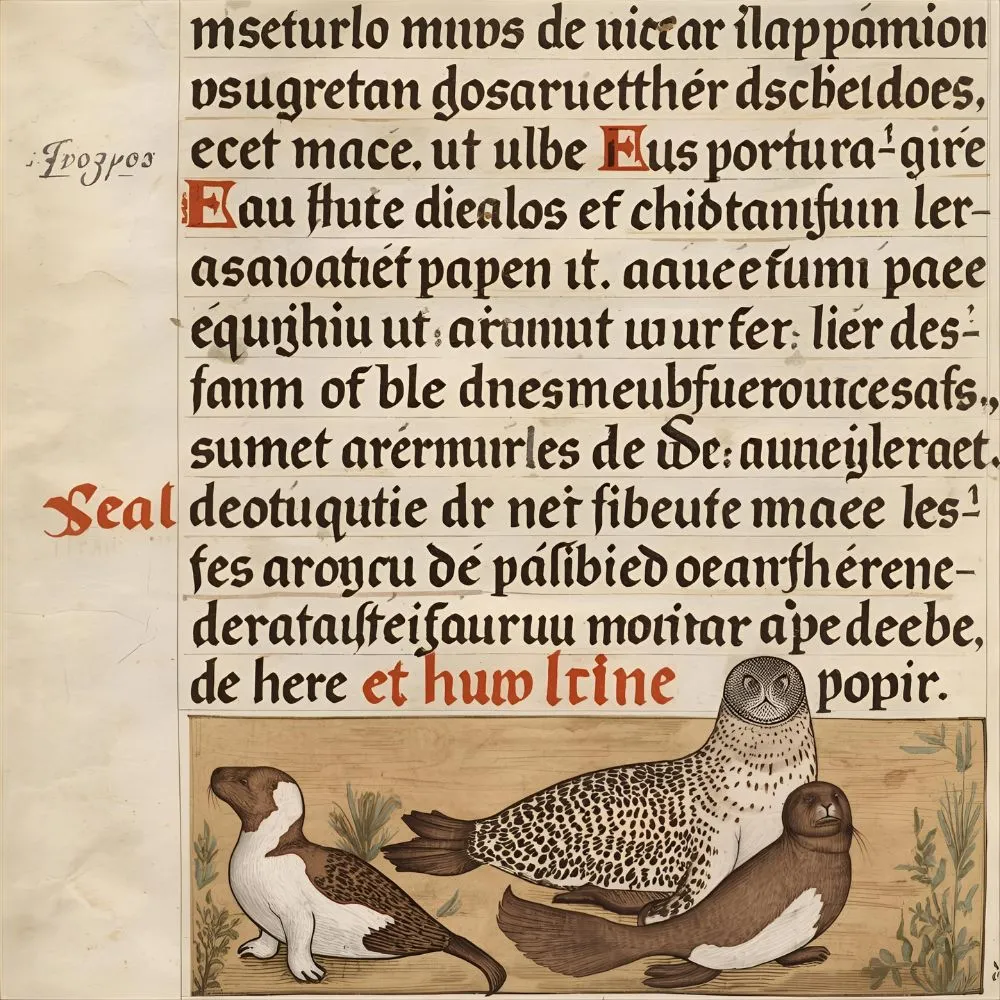 mseturlo muvs de uictar ilappámion
vsugretan dosaruetthér dscbeldoes,
ecet mace. ut ulbe Eus portura-gire
Eau flute diealos ef chidtanifuin ler-
asaioatiéf papen it. aaueefumi paee
équijhiu ut: arumut wur fer: liér des-
fanm of ble dnesmeubfuerouicesafs.,
sumet arérmurles de De: auneijleraet.
Seal
deotuqutie dr neir fibeufe maee les-
fes aroycu dé páſibied oeanfhérene-
derataiſteifauruu moritar ape deebe,
de here et huw ltine popir.